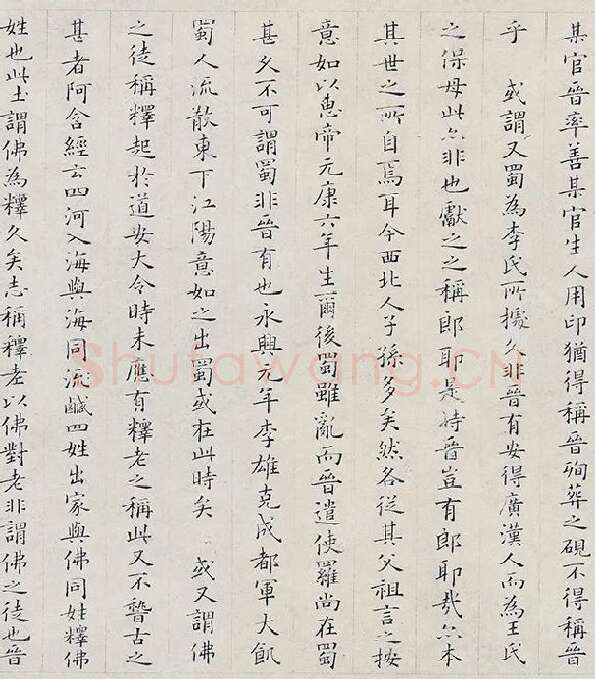 某官晉率善某官生人用印猶得稱晉殉葬之硯不得稱晉
乎 或謂又蜀為李氏所據久非晉有安得廣漢人而為王氏
之保母此亦非也獻之之稱郎耶是時晉豈有郎耶哉亦本
其世之所自焉耳今西北人子孫多矣然各從其父祖言之按
意如以惠帝元康六年生爾後蜀雖亂而晉遣使羅尚在蜀
甚久不可謂蜀非晉有也永興元年李雄克成都軍大飢
蜀人流散東下江陽意如之出蜀或在此時矣 或又謂佛
之徒稱釋起於道安大令時未應有釋老之稱此又不瞀古之
甚者阿含經云四河入海與海同流鹹四姓出家與佛同姓釋佛
姓也此土謂佛為釋久矣志稱釋老以佛對老非謂佛之徒也晉
Shufawang.CN